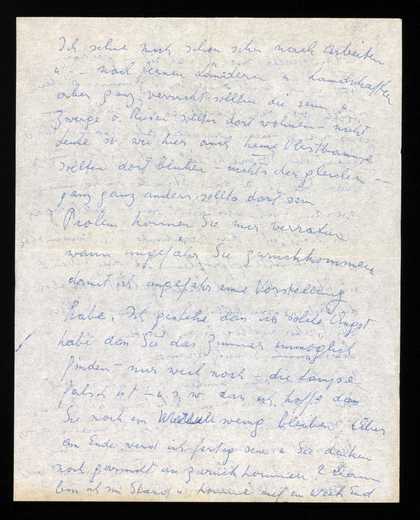 Ich sehne mich schon sehr nach arbeiten
u. .. nach fernen Ländern u. Landschaften
aber ganz verrückt sollten die sein u.
Zwerge o. Riesen sollten dort wohnen – nicht
Leute so wie hier auch keine Obstbäume
sollten dort blühen – nichts der gleichen –
ganz ganz anders sollte dort sein
können Sie mir verraten
wann ungefähr Sie zurückkommen
damit ich ungefähr eine Vorstellung
habe. Ich gestehe den ich solche Angst
habe den Sie das Zimmer unmöglich
finden – nur weil noch – die Lampe
falsch ist – u. z. w. ich hoffe das
Sie noch ein wenig bleiben. Aber
am Ende werd ich fertig sein u. Sie denken
noch garnicht an zurückkommen? Dann
bin ich im Stand u. komme auf ein Week End